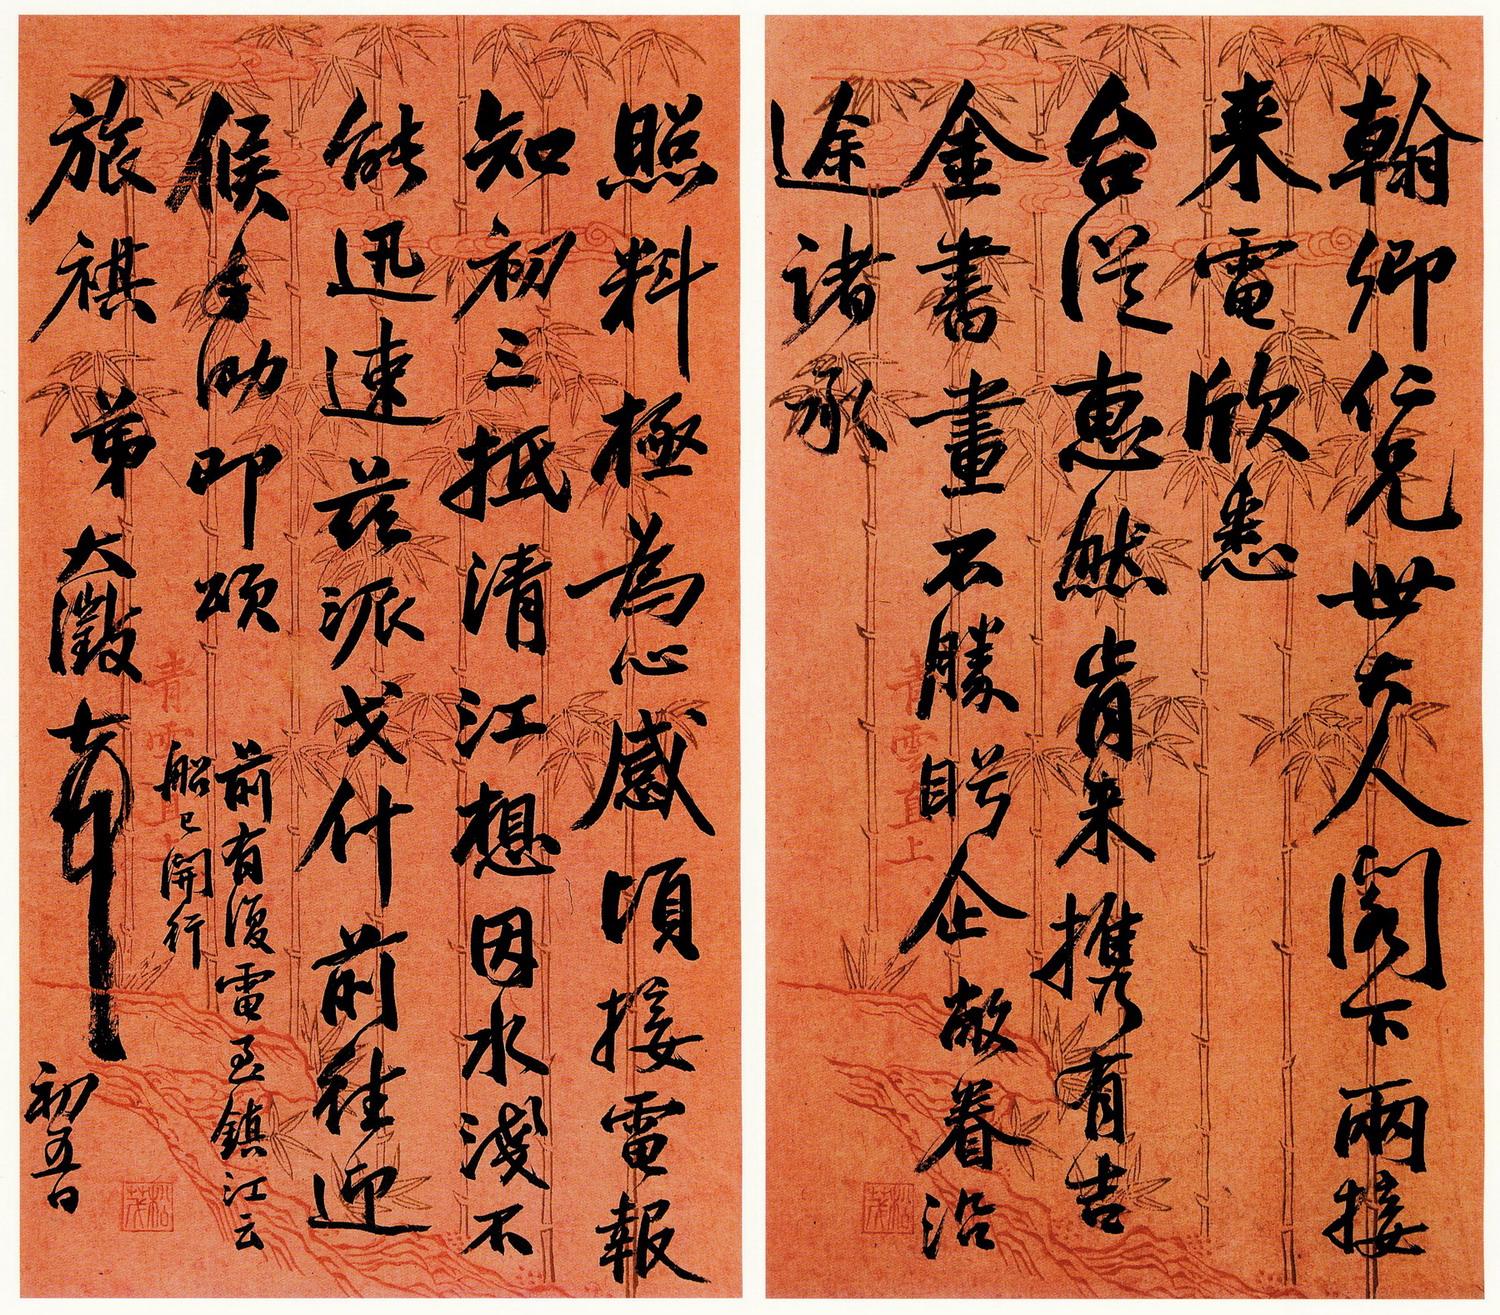 翰卿仁兄世大人閣下兩接
來電欣悉
台從惠然肯來攜有吉
金書畫不勝盼企敝眷沿
途諸承
照料極為心感頃接電報
知初三抵清江想因水淺不
能迅速茲派戈什前往迎
候手泐即頌
旅祺 弟大澂頓首
初五日
前有復電至鎮江云
船已開行
青雲直上
松茂
青雲直上
松茂